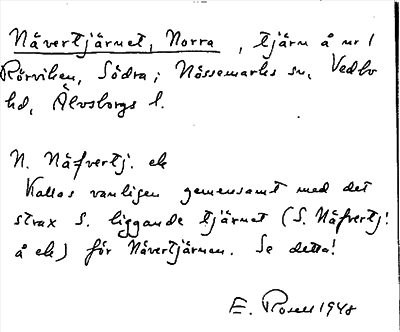 Nävertjärnet, Norra, tjärn å nr 1
Rörviken, Södra; Nössemarks sn, Vedbo
hd, Älvsborgs l.
N. Näfvertj. ek
Kallas vanligen gemensamt med det
strax S. liggande tjärnet (S. Näfvertj.
å ek) för Nävertjärnen. Se detta!
E. Rosell 1948